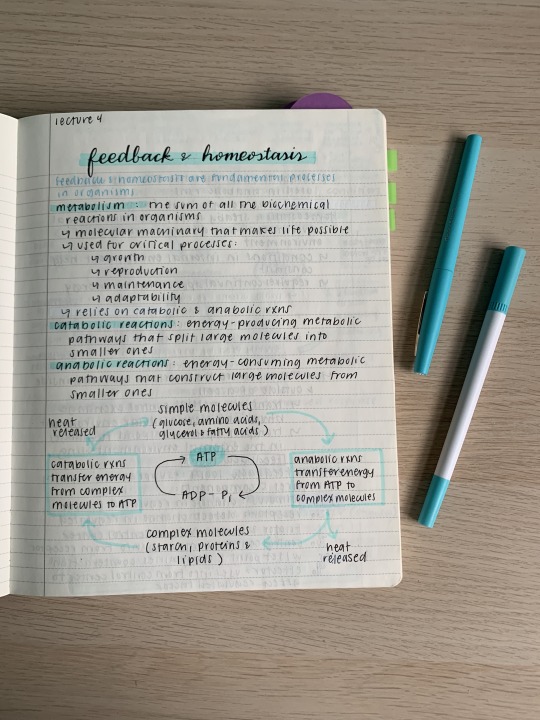 lecture 4
feedback & homeostasis
feedback & homeostasis are fundamental processes
in organisms
metabolism: the sum of all the biochemical
reactions in organisms
↳ molecular machinary that makes life possible
↳ used for critical processes:
↳ growth
↳ reproduction
↳ maintenance
↳ adaptability
↳ relies on catabolic & anabolic rxns
catabolic reactions: energy-producing metabolic
pathways that split large molecules into
smaller ones
anabolic reactions: energy-consuming metabolic
pathways that construct large molecules from
smaller ones
simple molecules
(glucose, amino acids,
glycerol & fatty acids)
heat
released
catabolic rxns
transfer energy
from complex
molecules to ATP
ATP
ADP - Pi
anabolic rxns
transfer energy
from ATP to
complex molecules
complex molecules
(starch, proteins &
lipids)
heat
released